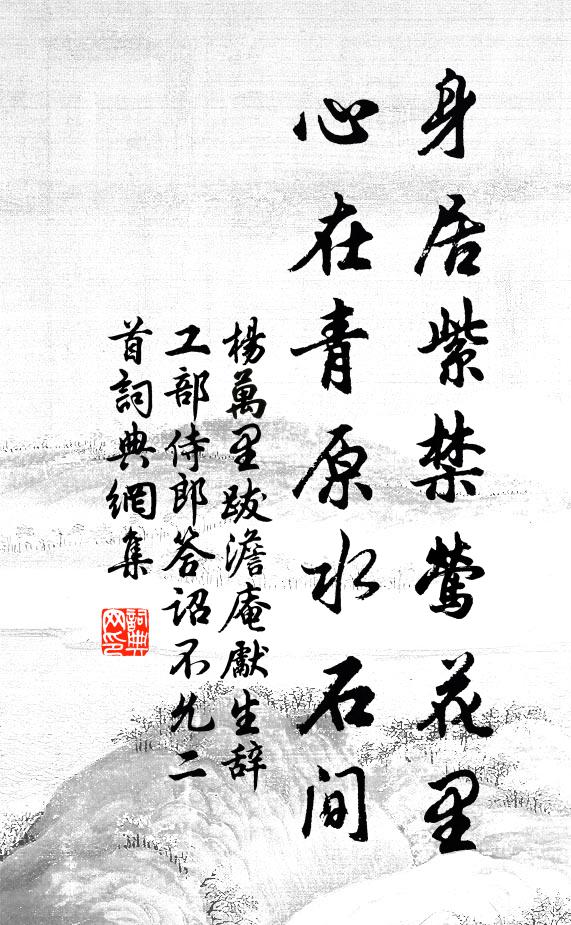 身居紫禁鶯花里
心在青原水石間
楊萬里跋澹庵獻生辞
工部侍郎答詔不允二
首詞典網集
詞典
网印